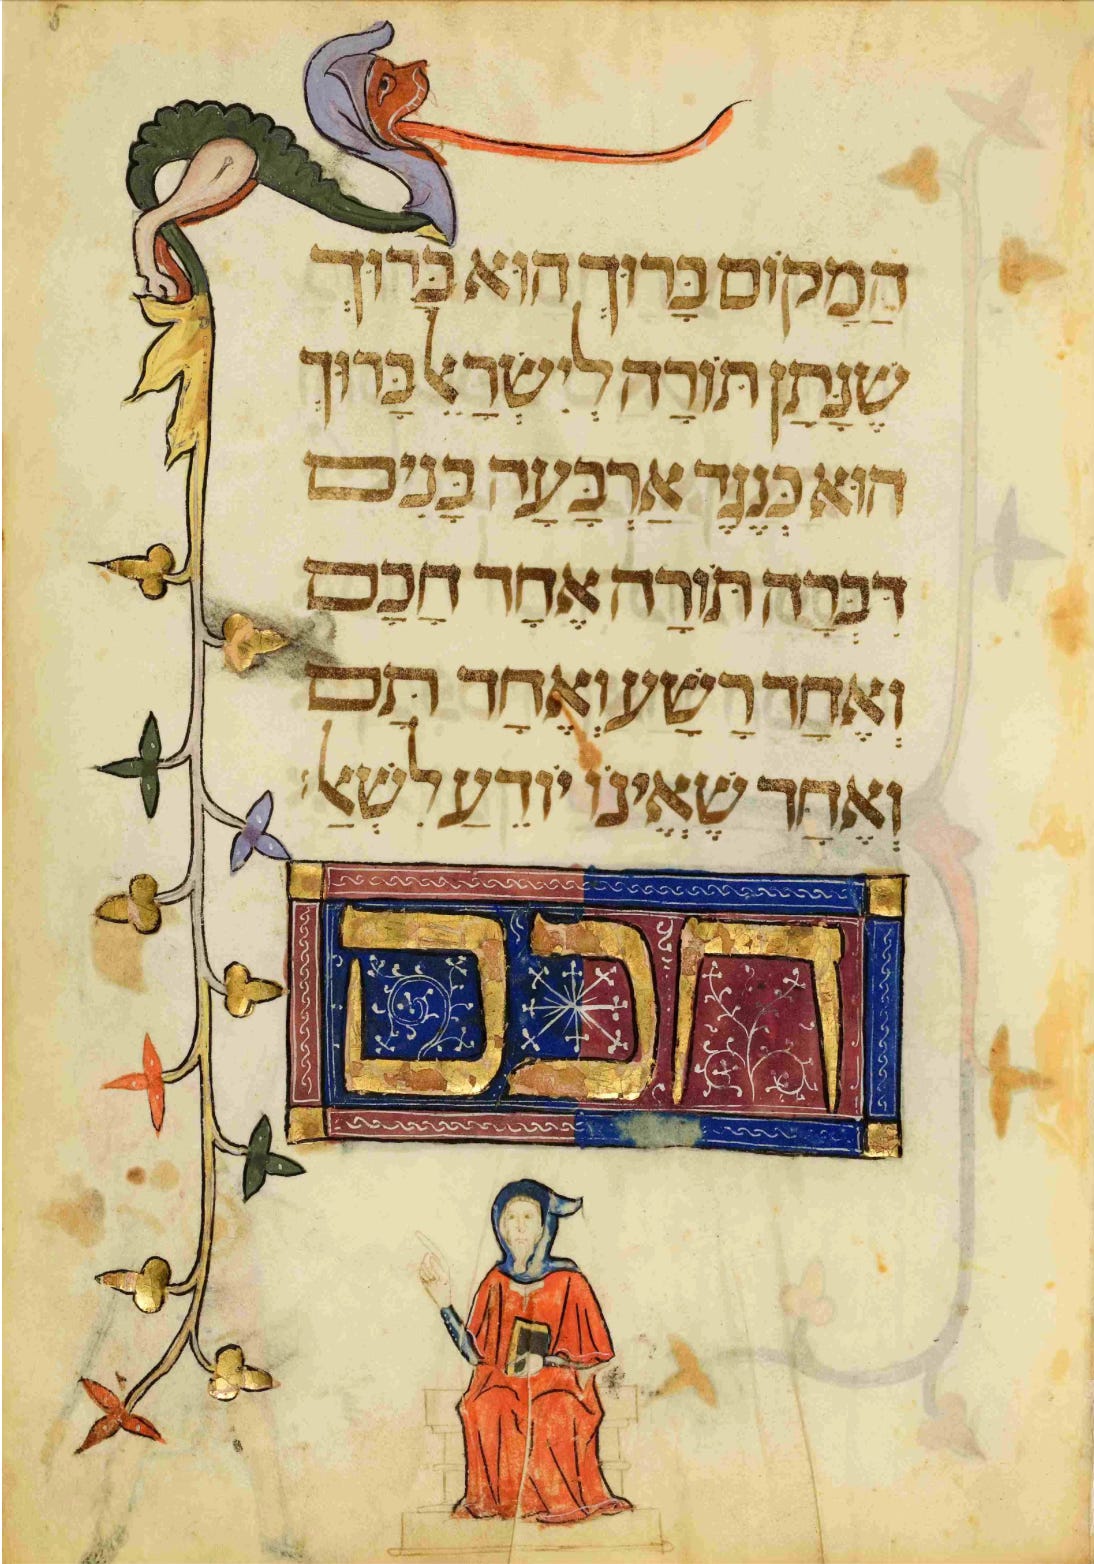 הַמָקוֹם בָּרוּךְ הוּא בָּרוּךְ
שֶׁנָּתַן תּוֹרָה לְיִשְׂרָאֵל בָּרוּךְ
הוּא כְּנֶגֶד אַרְבָּעָה בָּנִים
דִּבְּרָה תּוֹרָה אֶחָד חָכָם
וְאֶחָד רָשָׁע וְאֶחָד תָּם
וְאֶחָד שֶׁאֵינוֹ יוֹדֵעַ לִשְׁאַל׃
חכם